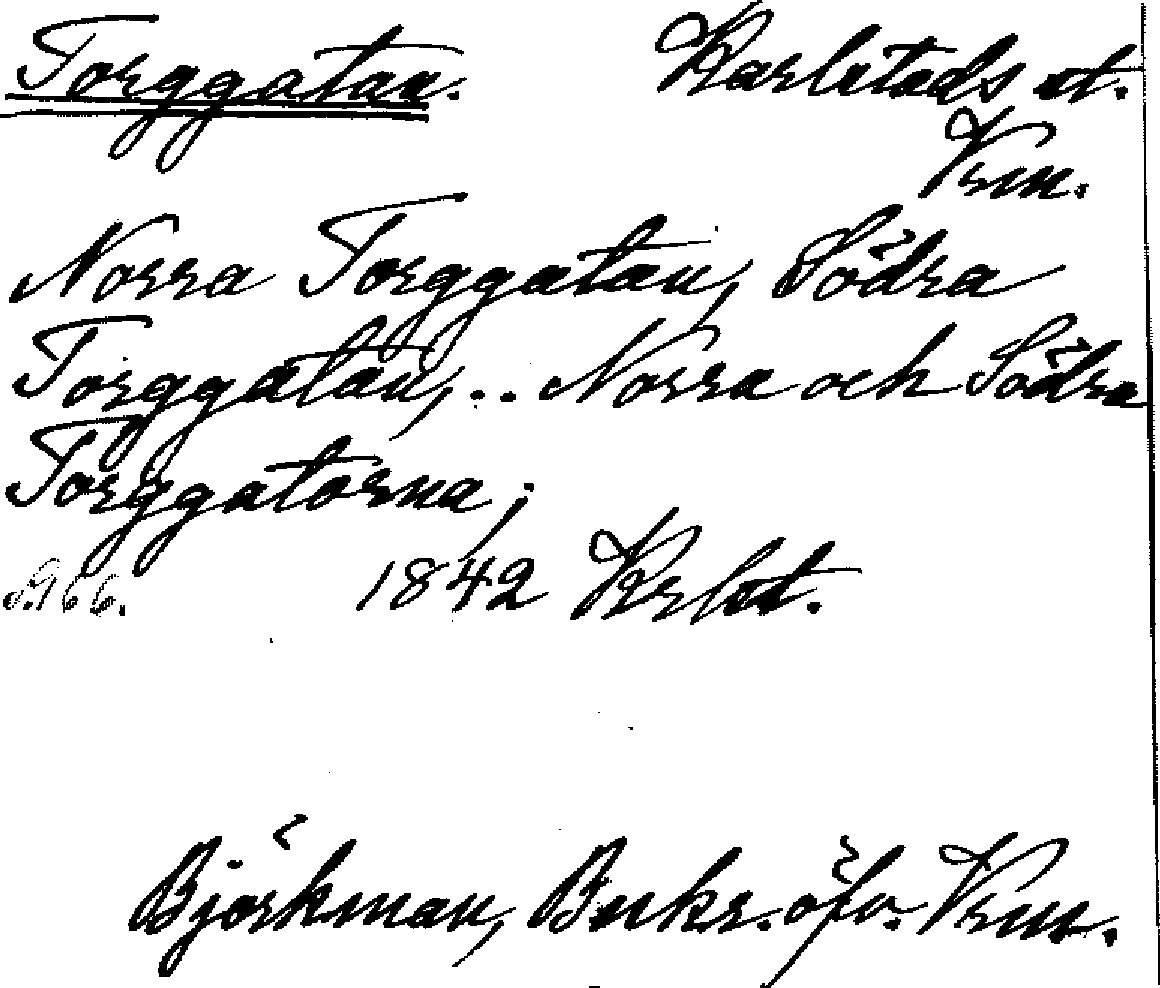 Torggatan. Karlstads st.
Vrm.
Norra Torggatan, Södra
Torggatan, .. Norra och Södra
Torggatorna;
s. 66. 1842 Krlst.
Björkman, Beskr. öfv. Vrm.